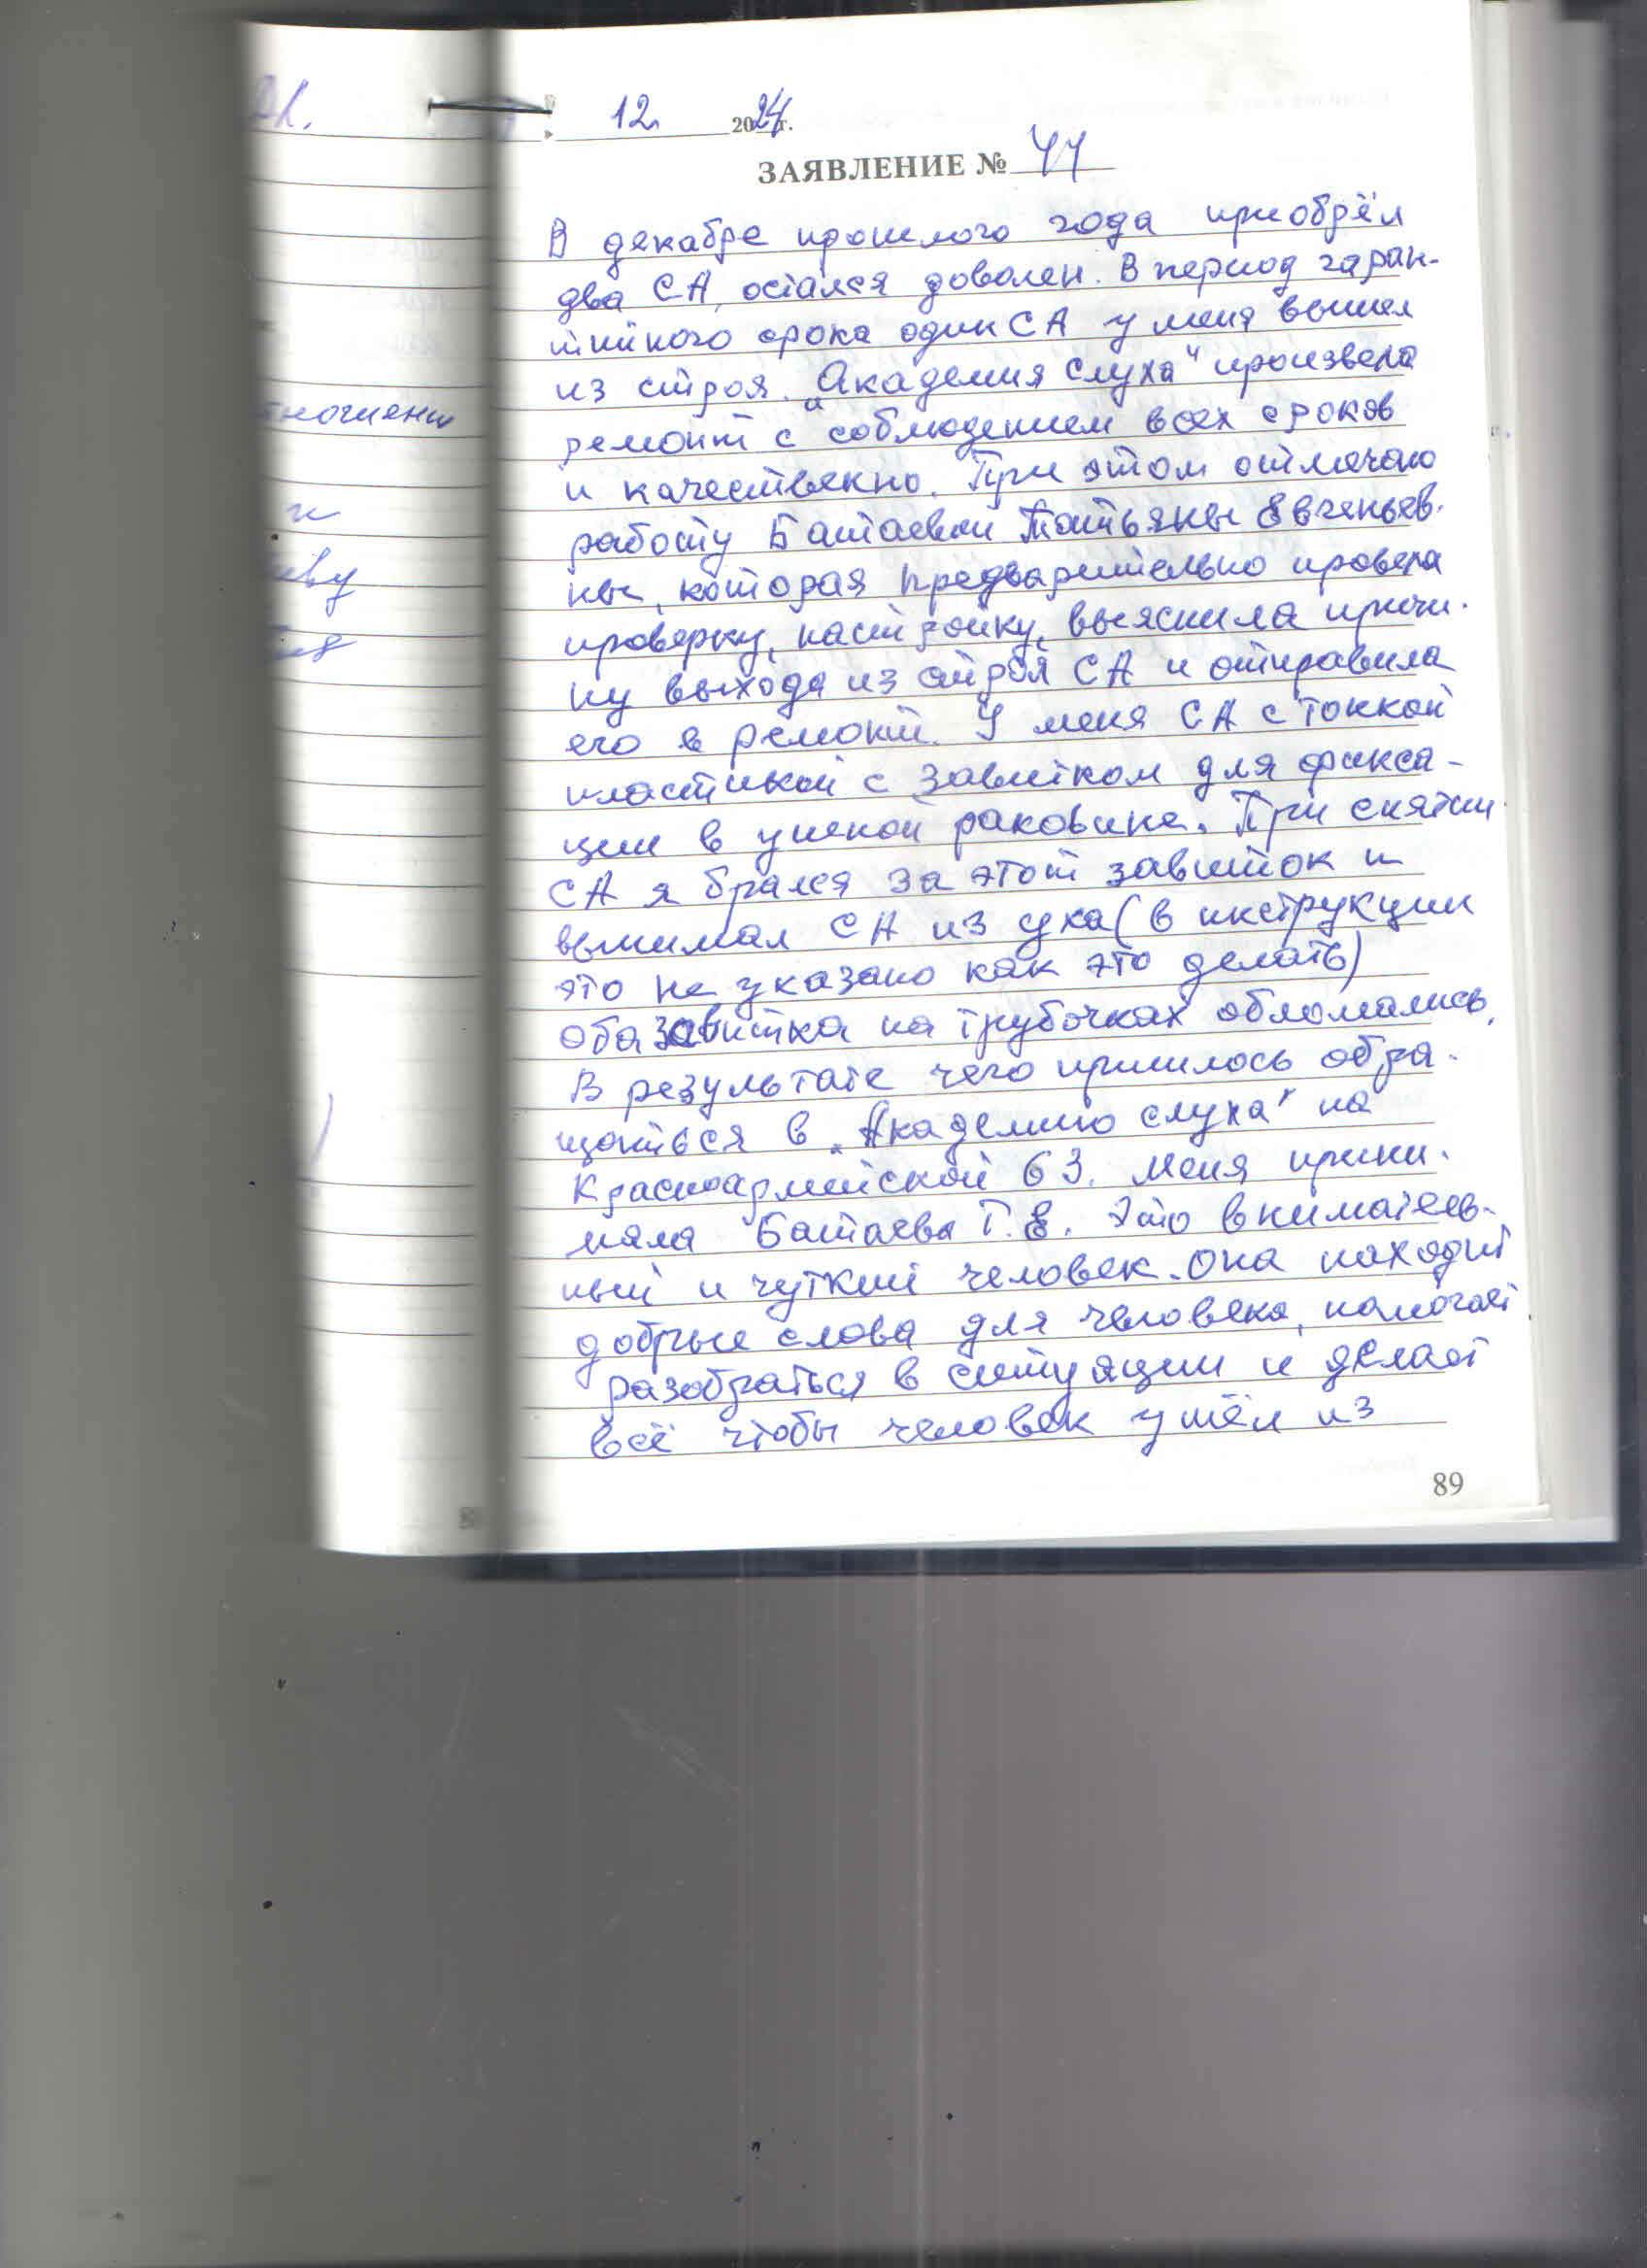 12. 2024 г.
ЗАЯВЛЕНИЕ № 44
В декабре прошлого года приобрёл
два СА, остался доволен. В период гаран-
тийного срока один СА у меня вышел
из строя. „Академия Слуха“ произвела
ремонт с соблюдением всех сроков
и качественно. При этом отмечаю
работу Батаевой Татьяны Евгеньев-
ны, которая предварительно провела
проверку, настройку, выяснила причи-
ну выхода из строя СА и отправила
его в ремонт. У меня СА с тонкой
пластикой с завитком для фикса-
ции в ушной раковине. При снятии
СА я брался за этот завиток и
вынимал СА из уха (в инструкции
это не указано как это делать)
оба завитка на трубочках обломались,
В результате чего пришлось обра-
щаться в „Академию слуха“ на
Красноармейской 63. Меня прини-
мала Батаева Т.Е. Это вниматель-
ный и чуткий человек. Она находит
добрые слова для человека, помогает
разобраться в ситуации и делает
всё чтобы человек ушёл из
89